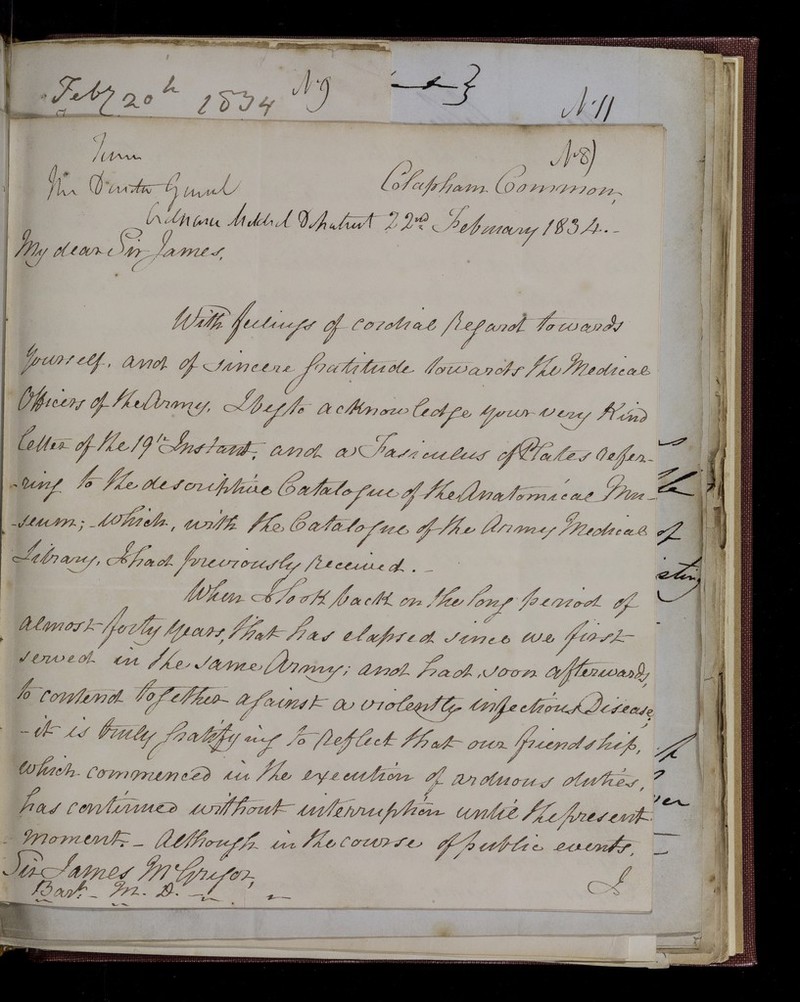 Feby 20th 1834 No 9
No 11
No 8)
From
The Director General Clapham Common,
Ordnance Medical Department 22nd February 1834.-
My dear Sir James,
With feelings of cordial Regard towards
Yourself, and of sincere gratitude towards the Medical
Officers of the Army, I beg to acknowledge your very Kind
Letter of the 19th Instant, and a Fasiculus of Plates refer-
-ring to the descriptive Catalogue of the Anatomical Mu-
-seum; - which, with the Catalogue of the Army Medical
Library, I had previously Received. -
When I look back on the long period of
almost forty Years, that has elapsed since we first
served in the same Army; and had, soon afterwards,
to contend together against a violently infectious Disease,
- it is truly gratifying to Reflect that our friendship,
which commenced in the execution of arduous duties,
has continued without interruption until the present
moment. - Although in the course of public events,
Sir James McGrigor,
Bart. - M. D. -
I